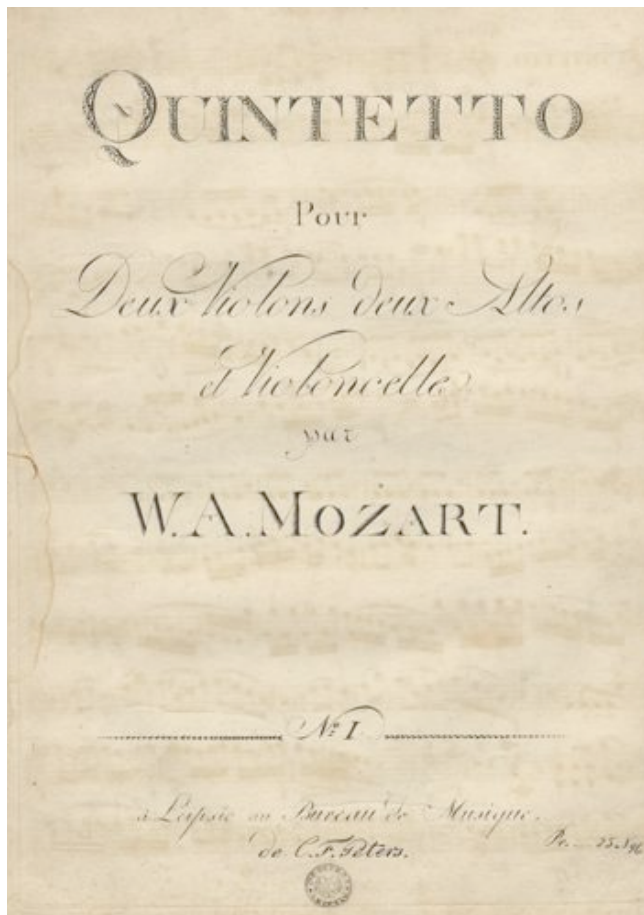 QUINTETTO
Pour
Deux Violons deux Altos
et Violoncelle
par
W. A. MOZART.
Nº I
à Leipsic au Bureau de Musique.
de C. F. Peters.
Pr.